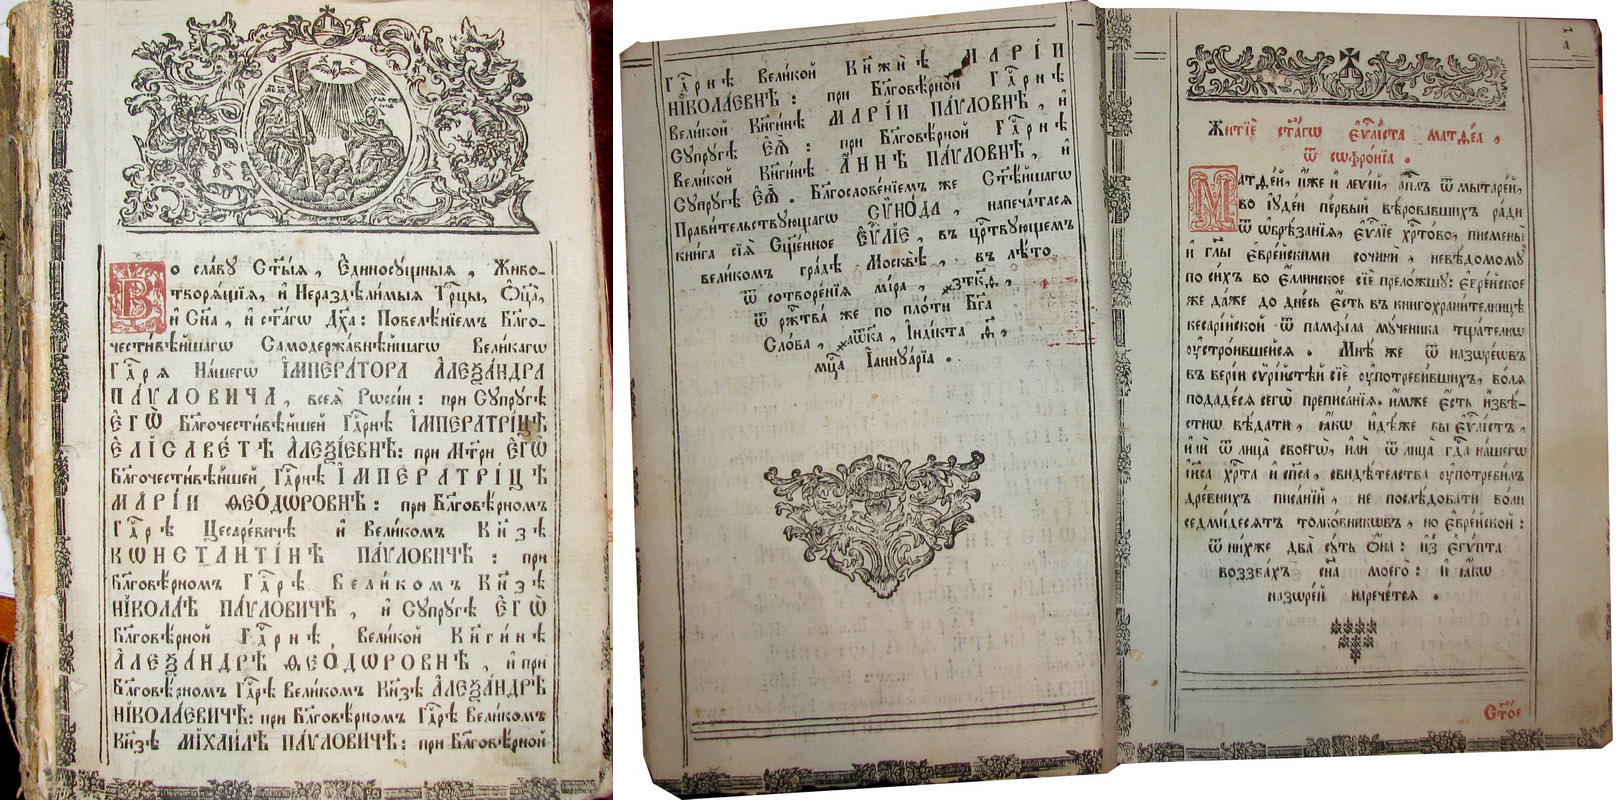 Во сла́ву Ст҃ы́ѧ, Є҆диносꙋ́щныѧ, Живо-
творѧ́щїѧ, и҆ Нераздѣли́мыѧ Трⷪ҇цы, Ѻ҆ц҃а̀,
и҆ Сн҃а, и҆ ст҃а́гѡ Дх҃а: Повелѣ́нїемъ Бл҃го-
чести́вѣйшагѡ Самодержа́внѣйшагѡ Вели́кагѡ
Гдⷭ҇рѧ На́шегѡ І҆МПЕРА́ТОРА А҆ЛЕѮА́НДРА
ПА́ѴЛОВИЧА, всеѧ̀ Рѡссі́и: при Сꙋпрꙋ́гѣ
Є҆ГѠ̀ Бл҃гочести́вѣйшей Гдⷭ҇рнѣ І҆МПЕРАТРІ́ЦѢ
Є҆ЛІСАВЕ́ТѢ А҆ЛЕѮІ́ЕВНѢ: при Мт҃ри Є҆ГѠ̀
Бл҃гочести́вѣйшей Гдⷭ҇рнѣ І҆МПЕРАТРІ́ЦѢ
МАРІ́И ѲЕО́ДѠРОВНѢ: при Бл҃говѣ́рномъ
Гдⷭ҇рѣ Цесаре́вичѣ и҆ Вели́комъ Кн҃зѣ
КѠНСТАНТІ́НѢ ПА́ѴЛОВИЧѢ: при
Бл҃говѣ́рномъ Гдⷭ҇рѣ Вели́комъ Кн҃зѣ
НІКОЛА́Ѣ ПА́ѴЛОВИЧѢ, и҆ Сꙋпрꙋ́гѣ Є҆ГѠ̀
Бл҃говѣ́рной Гдⷭ҇рнѣ Вели́кой Кн҃ги́нѣ
А҆ЛЕѮА́НДРѢ ѲЕО́ДѠРОВНѢ, и҆ при
Бл҃говѣ́рномъ Гдⷭ҇рѣ Вели́комъ Кн҃зѣ А҆ЛЕѮА́НДРѢ
НІКОЛА́ЕВИЧѢ: при Бл҃говѣ́рномъ Гдⷭ҇рѣ Вели́комъ
Кн҃зѣ МІХАИ́ЛѢ ПА́ѴЛОВИЧѢ: при Бл҃говѣ́рной
Гдⷭ҇рнѣ Вели́кой Кн҃жнѣ̀ МАРІ́И
НІКОЛА́ЕВНѢ: при Бл҃говѣ́рной Гдⷭ҇рнѣ
Вели́кой Кн҃ги́нѣ МАРІ́И ПА́ѴЛОВНѢ, и҆
Сꙋпрꙋ́гѣ Є҆Ѧ̀: при Бл҃говѣ́рной Гдⷭ҇рнѣ
Вели́кой Кн҃ги́нѣ А҆́ННѢ ПА́ѴЛОВНѢ, и҆
Сꙋпрꙋ́гѣ Є҆Ѧ̀. Благослове́нїемъ же Ст҃ѣ́йшагѡ
Прави́тельствꙋющагѡ СѴНО́ДА, напеча́тасѧ
кни́га сїѧ̀ Сщ҃е́нное Є҆ѴⷢЛІЕ, въ црⷭ҇твꙋющемъ
вели́комъ гра́дѣ Москвѣ̀, въ лѣ́то
ѿ сотворе́нїѧ мі́ра, ҂зтк҃д,
ѿ рждⷭ҇тва̀ же по пло́ти Бг҃а
Сло́ва, ҂аѡ҃ка, І҆нді́кта д҃,
мцⷭ҇а І҆аннꙋа́рїа.
Житїѐ ст҃а́гѡ є҆ѵⷢлі́ста матѳе́а,
ѿ сѡфро́нїа.
Матѳе́й, и҆́же и҆ леѵі́й, а҆пⷭ҇лъ ѿ мытаре́й,
во і҆ꙋде́и пе́рвый вѣ́ровавшихъ ра́ди
ѿ ѡ҆брѣ́занїѧ, є҆ѵⷢлїе хрⷭ҇то́во, писмены̀
и҆ гл҃ы є҆вре́йскими сочинѝ, невѣ́домомꙋ
по си́хъ во є҆́ллинское сїѐ преложшꙋ̀: є҆вре́йское
же да́же до дне́сь є҆́сть въ книгохрани́тельницѣ
кесарі́йской ѿ памфі́ла мꙋ́ченика тща́тельнѡ
ᲂу҆стро́ившейсѧ. Мнѣ́ же ѿ назѡре́ѡвъ
въ ве́рїи сѷрі́йстѣй сїѐ ᲂу҆потреби́вшихъ, во́лѧ
подаде́сѧ сегѡ̀ преписа́нїѧ. и҆́мже є҆́сть и҆звѣ́-
стнѡ вѣ́дати, ꙗ҆́кѡ и҆дѣ́же бы є҆ѵⷢлі́стъ,
и҆лѝ ѿ лица̀ своегѡ̀, и҆лѝ ѿ лица̀ гдⷭ҇а на́шегѡ
і҆и҃са хрⷭ҇та̀ и҆ сп҃са, свидѣ́тельства ᲂу҆потреби́лъ
дре́внихъ писа́нїй, не послѣ́довати во́ли
седми́десѧтъ толко́вникѡвъ, но є҆вре́йской:
ѿ ни́хже два̀ сꙋ́ть ѻ҆́на: и҆з̾ є҆гѵ́пта
воззва́хъ сн҃а моего̀: и҆ ꙗ҆́кѡ
назѡре́й нарече́тсѧ.
Ст҃о́е